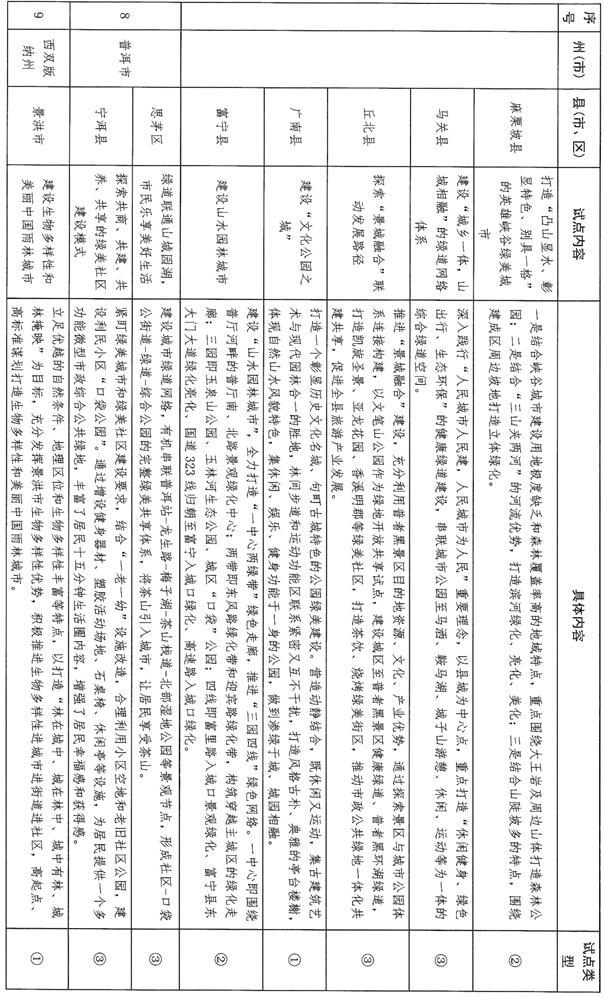 序号
州（市）
县（市、区）
试点内容
具体内容
试点类型
麻栗坡县
打造“凸山显水、彰
显特色、别具一格”
的英雄峡谷绿美城
市
一是结合峡谷城市建设用地极度缺乏和森林覆盖率高的地域特点，重点围绕大王岩及周边山体打造森林公
园；二是结合“三山夹两河”的河流优势，打造滨河绿化、亮化、美化；三是结合山陡坡多的特点，围绕
建成区周边坡地打造立体绿化。
②
马关县
建设“城乡一体，山
城相融”的绿道网络
体系
深入践行“人民城市人民建，人民城市为人民”重要理念，以县城为中心点，重点打造“休闲健身、绿色
出行、生态环保”的健康绿道建设，串联城市公园至马洒、鞍马湖、城子山游憩、休闲、运动等为一体的
综合绿道空间。
③
丘北县
探索“景城融合”联
动发展路径
推进“景城融合”建设，充分利用普者黑景区目的地资源、文化、产业优势，通过探索景区与城市公园体
系连接构建，以文笔山公园作为绿地开放共享试点，建设城区至普者黑景区健康绿道、普者黑环湖绿道，
打造凯旋圣景、亚龙花园、香溪明郡等绿美社区，打造茶饮、烧烤绿美街区，推动市政公共绿地一体化共
建共享，促进全县旅游产业发展。
③
广南县
建设“文化公园之
城”
打造一个彰显历史文化名城、句町古城特色的公园绿美建设。营造动静结合，既休闲又运动，集古建筑艺
术与现代园林合一的胜地，林间步道和运动功能区联系紧密又互不干扰，打造风格古朴、典雅的亭台楼榭，
体现自然山水风貌特色，集休闲、娱乐、健身功能于一身的公园，做到渗绿于城，城园相融。
①
富宁县
建设山水园林城市
建设“山水园林城市”，全力打造“一中心两绿带”绿色走廊，推进“三园四线”绿色网络。一中心即围绕
普厅河畔的普厅南、北路景观绿化中心；两带即东风路绿化带和迎宾路绿化带，构筑穿越主城区的绿化走
廊；三园即玉泉山公园、玉林河生态公园、城区“口袋”公园；四线即富里路入城口景观绿化、富宁县东
大门大道绿化亮化，国道323线归朝至富宁入城口绿化、高速路入城口绿化。
②
8
普洱市
思茅区
绿道联通山城园湖，
市民乐享美好生活
建设城市绿道网络，有机串联普洱站-龙生路-梅子湖-茶山栈道-北部湿地公园等景观节点，形成社区-口袋
公街道-绿道-综合公园的完整绿美共享体系，将茶山引入城市，让居民享受茶山。
③
宁洱县
探索共商、共建、共
养、共享的绿美社区
建设模式
紧盯绿美城市和绿美社区建设要求，结合“一老一幼”设施改造，合理利用小区空地和老旧社区公园，建
设利民小区“口袋公园”。通过增设健身器材、塑胶活动场地、石桌椅、休闲亭等设施，为居民提供一个多
功能微型市政综合公共绿地，丰富了居民十五分钟生活圈内容，增强了居民幸福感和获得感。
③
9
西双版
纳州
景洪市
建设生物多样性和
美丽中国雨林城市
立足优越的自然条件、地理区位和生物多样性丰富等特点，以打造“林在城中、城在林中、城中有林、城
林掩映”为目标，充分发挥景洪市生物多样性优势，积极推进生物多样性进城市进街道进社区，高起点、
高标准谋划打造生物多样性和美丽中国雨林城市。
①